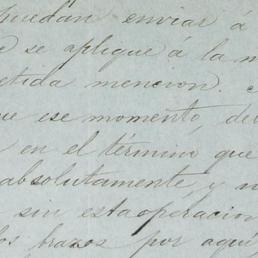 puedan enviar á
se aplique á la
etida mencion.
ue ese momento, de
en el término que
absolutamente, y
sin esta operacion
los brazos por aquí